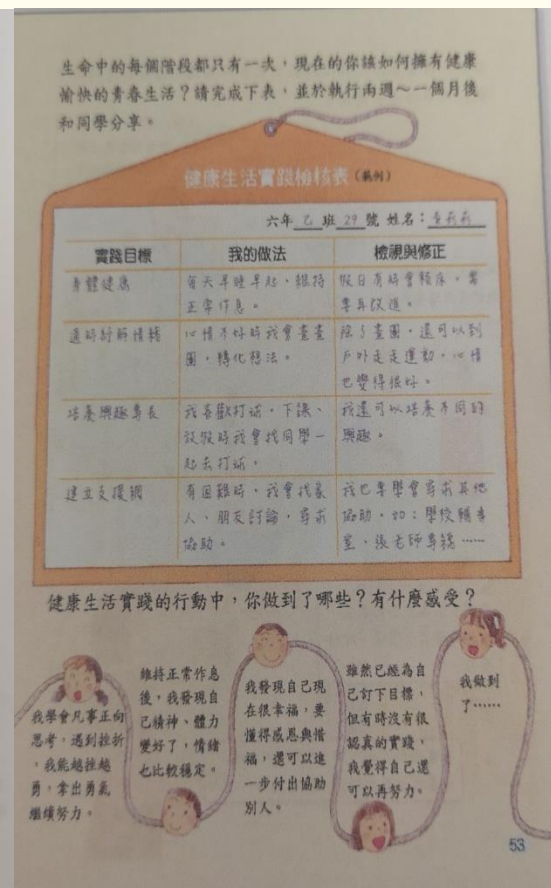 生命中的每個階段都只有一次，現在的你該如何擁有健康
愉快的青春生活？請完成下表，並於執行兩週～一個月後
和同學分享。
健康生活實踐檢核表（範例）
六年乙班29號 姓名：黃莉莉
實踐目標
我的做法
檢視與修正
身體健康
每天早睡早起，維持
正常作息。
假日有時會賴床，需
要再改進。
適時紓解情緒
心情不好時我會畫畫
圖，轉化想法。
除了畫圖，還可以到
戶外走走運動，心情
也變得很好。
培養興趣專長
我喜歡打球，下課、
放假時我會找同學一
起去打球。
我還可以培養不同的
興趣。
建立支援網
有困難時，我會找家
人、朋友討論，尋求
協助。
我也要學會尋求其他
協助，如：學校輔導
室、張老師專線……
健康生活實踐的行動中，你做到了哪些？有什麼感受？
我學會凡事正向
思考，遇到挫折
，我能越挫越
勇，拿出勇氣
繼續努力。
維持正常作息
後，我發現自
己精神、體力
變好了，情緒
也比較穩定。
我發現自己現
在很幸福，要
懂得感恩與惜
福，還可以進
一步付出協助
別人。
雖然已經為自
己訂下目標，
但有時沒有很
認真的實踐，
我覺得自己還
可以再努力。
我做到
了……
53